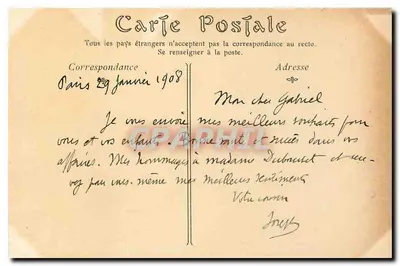 Carte Postale
Tous les pays étrangers n'acceptent pas la correspondance au recto.
Se renseigner à la poste.
Correspondance
Adresse
Paris 29 Janvier 1908
Mon cher Gabriel
Je vous envoie mes meilleurs souhaits pour
vous et vos enfants. Bonne santé et succès dans vos
affaires. Mes hommages à madame et rece-
vez pour vous-même mes meilleurs sentiments
Votre cousin
Joseph